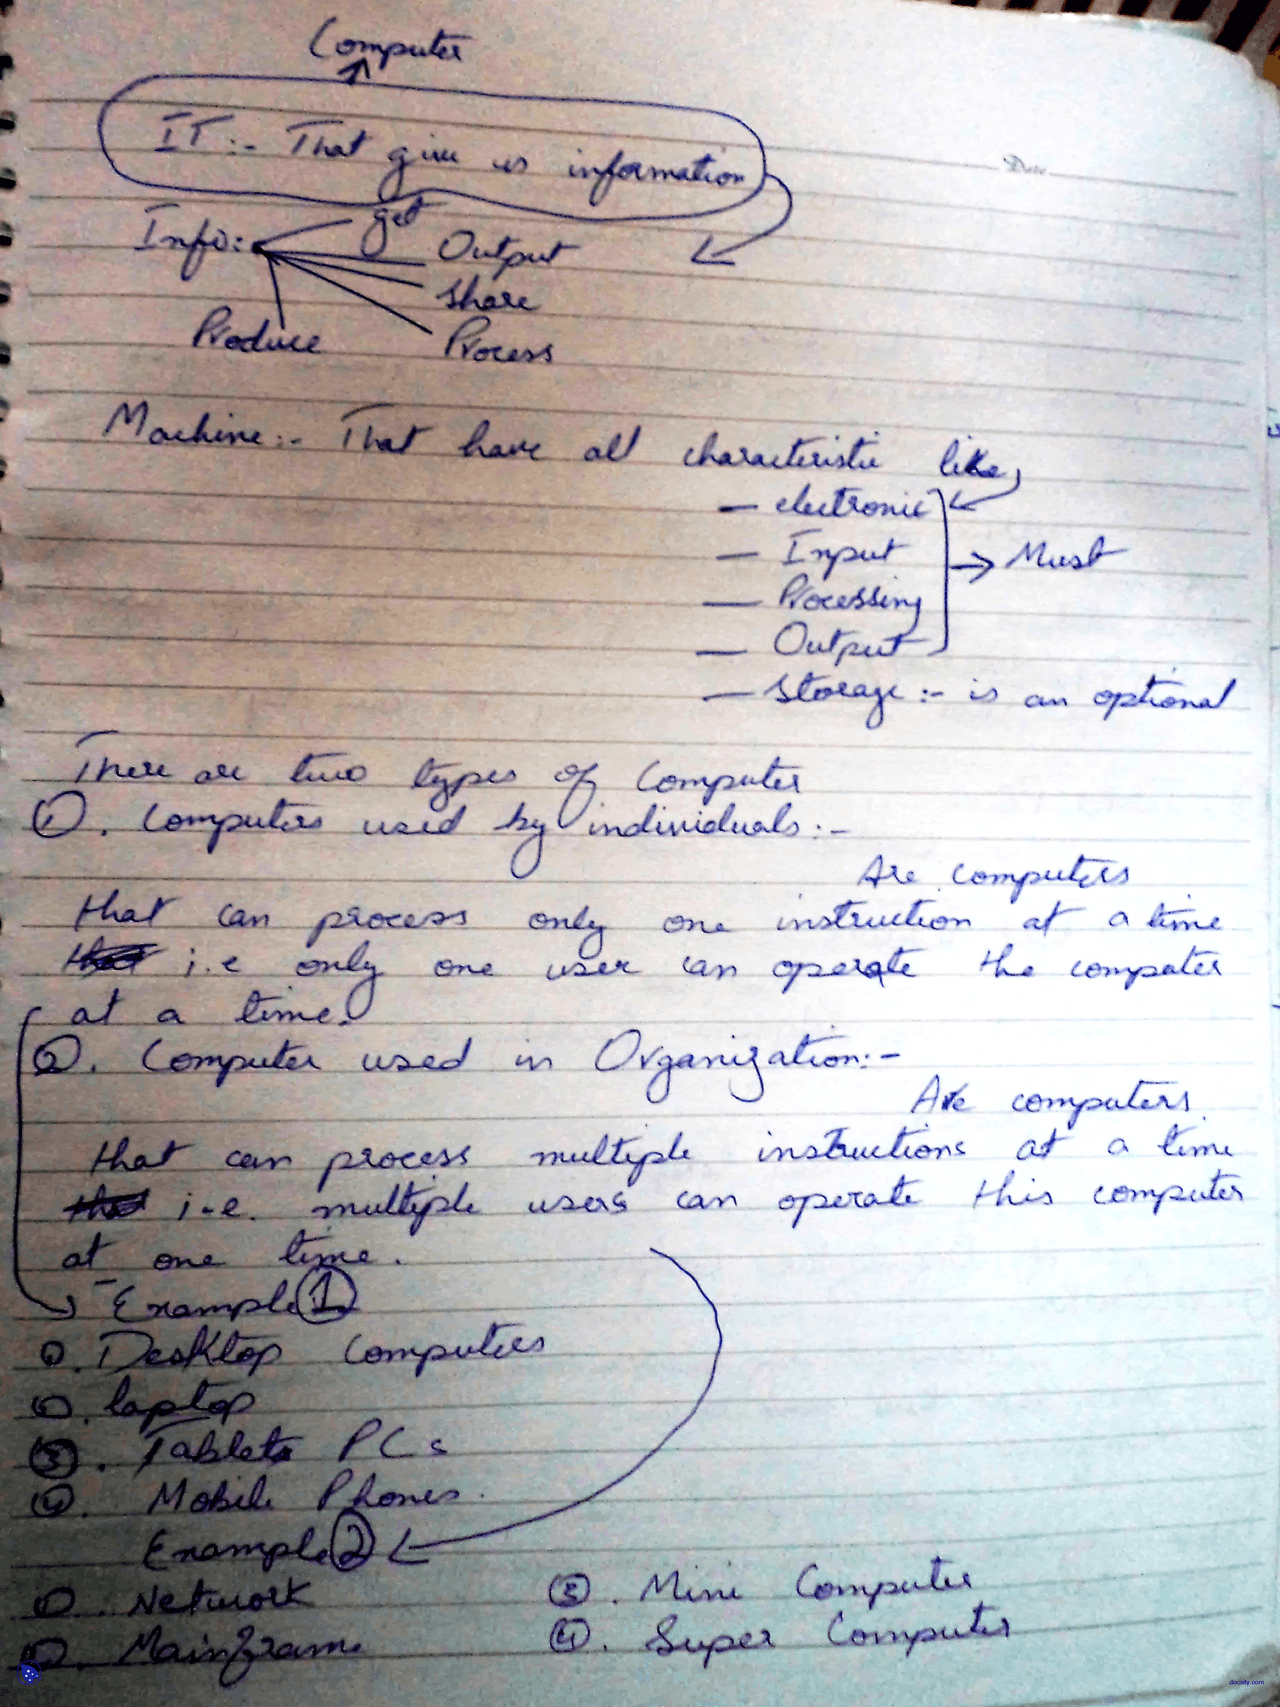 Computer
IT:- That give us information
Date
Info:
get
Output
Share
Produce Process
Machine:- That have all characteristic like,
— electronic
— Input → Must
— Processing
— Output
— Storage:- is an optional
There are two types of Computer
①. Computers used by individuals:-
Are computers
that can process only one instruction at a time
i.e only one user can operate the computer
at a time.
②. Computer used in Organization:-
Are computers
that can process multiple instructions at a time
i-e. multiple users can operate this computer
at one time.
Example ①
①. Desktop Computers
②. laptop
③. Tablets PCs
④. Mobile Phones.
Example ②
①. Network ③. Mini Computer
②. Mainframe ④. Super Computer
docsity.com